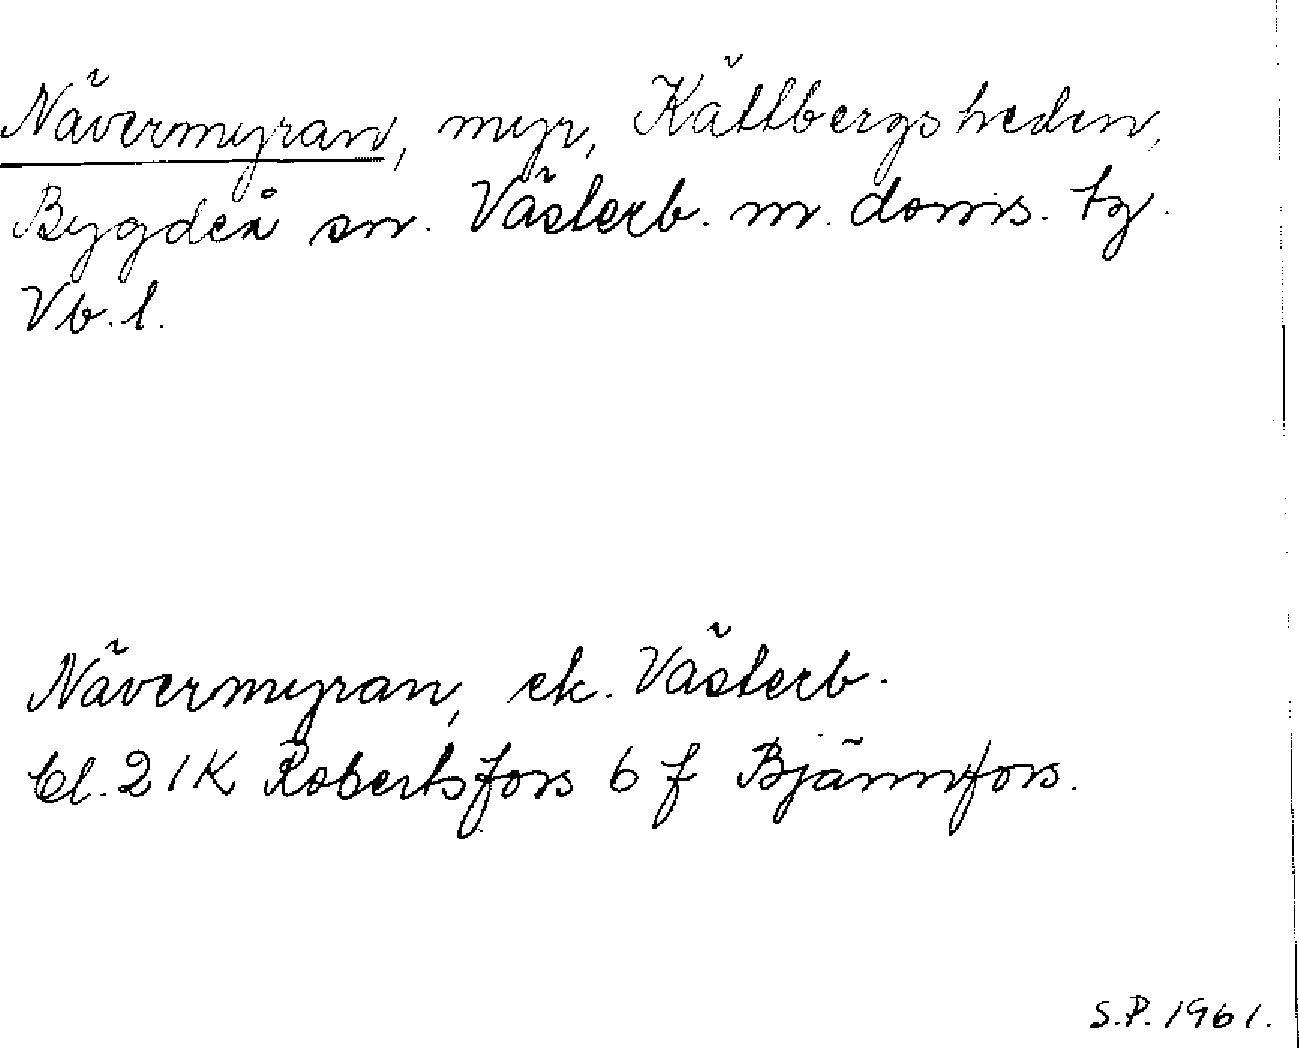 Nävermyran, myr, Kättbergsheden,
Bygdeå sn. Västerb. m. doms. tg.
Vb. l.
Nävermyran, ek. Västerb.
bl. 21K Robertsfors 6 f Bjännfors.
S.P. 1961.